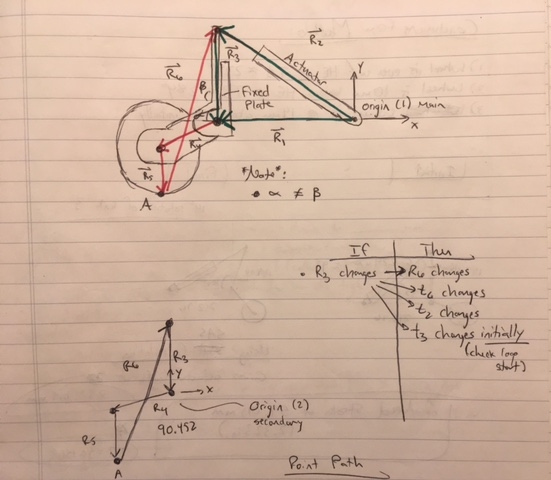 R2
R3
R6
Actuator
Y
β
Fixed
Plate
origin (1) Main
x
R1
R4
R5
A
*Note*:
• α ≠ β
If Then
• R3 changes → R6 changes
t6 changes
t2 changes
t3 changes initially
(check loop
start)
R6
R3
Y
x
R4
Origin (2)
secondary
90.452
R5
A
Point Path